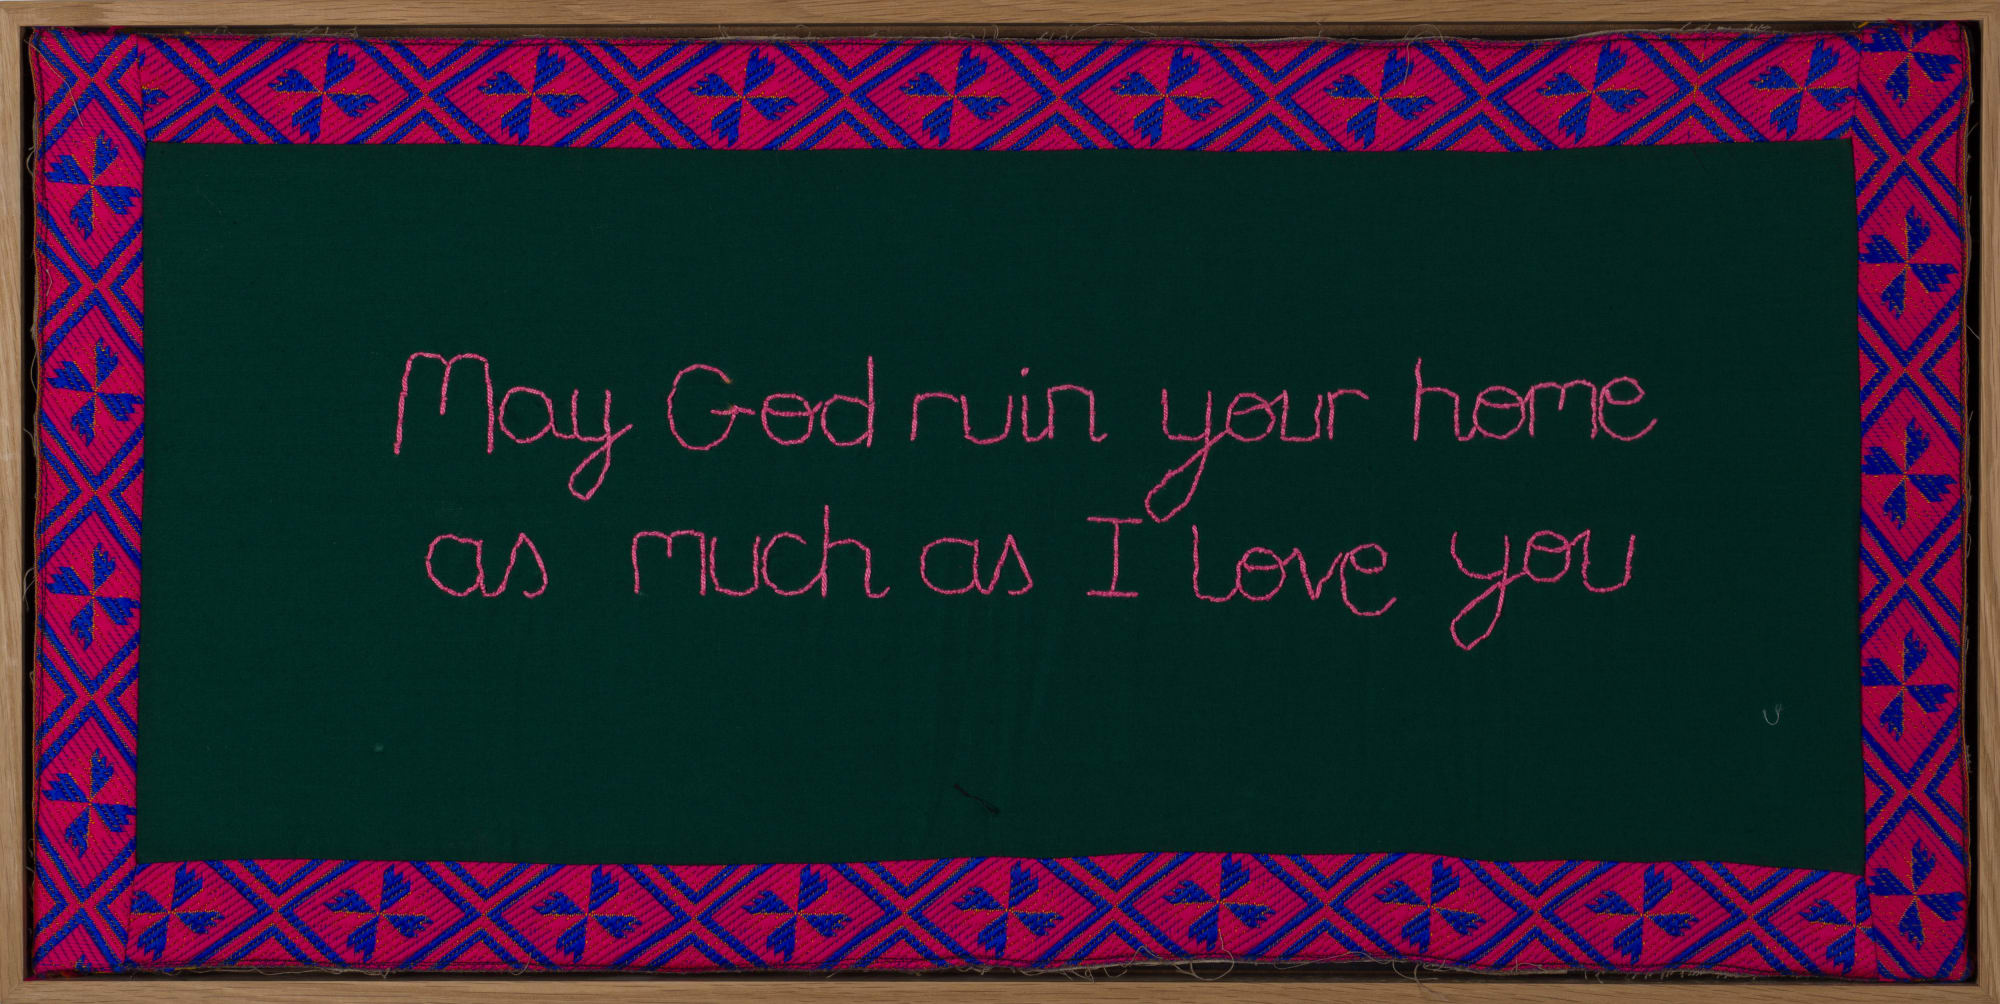 May God ruin your home
as much as I love you